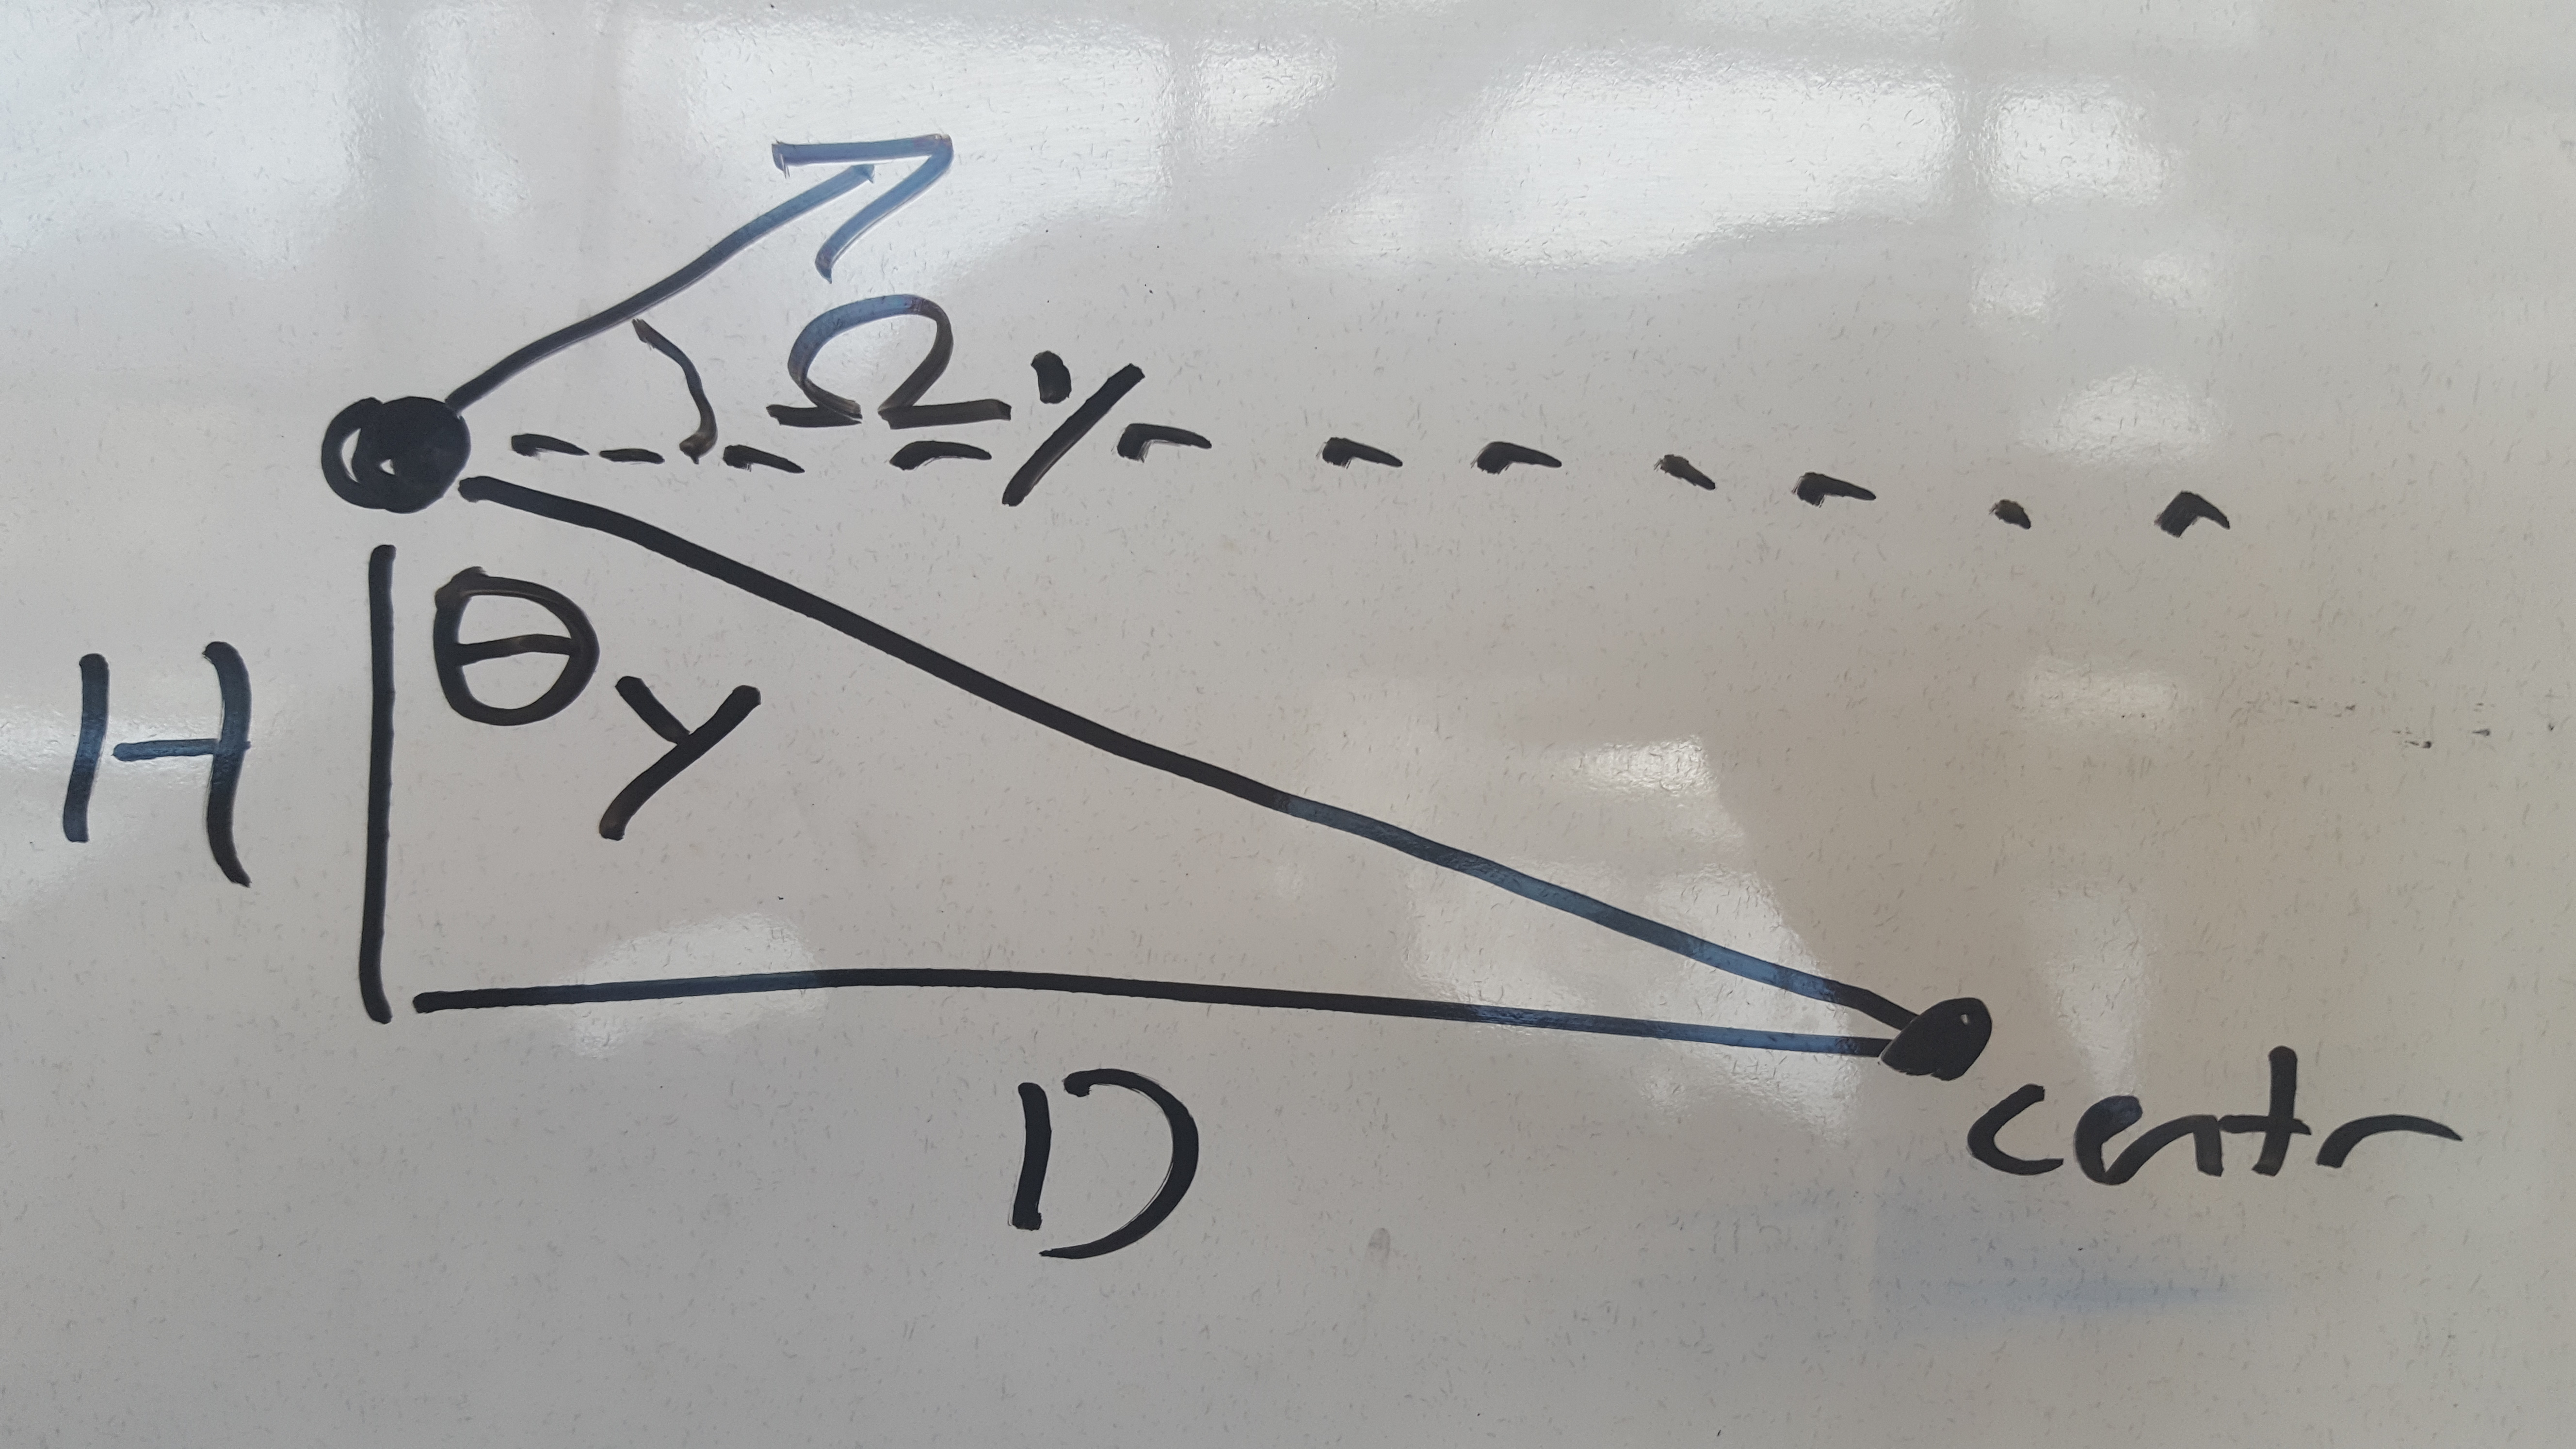 Ωy
θy
H
D
centr